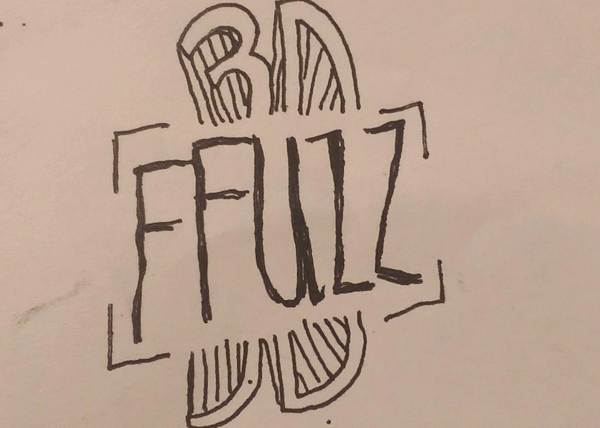 BD
FFUZZ